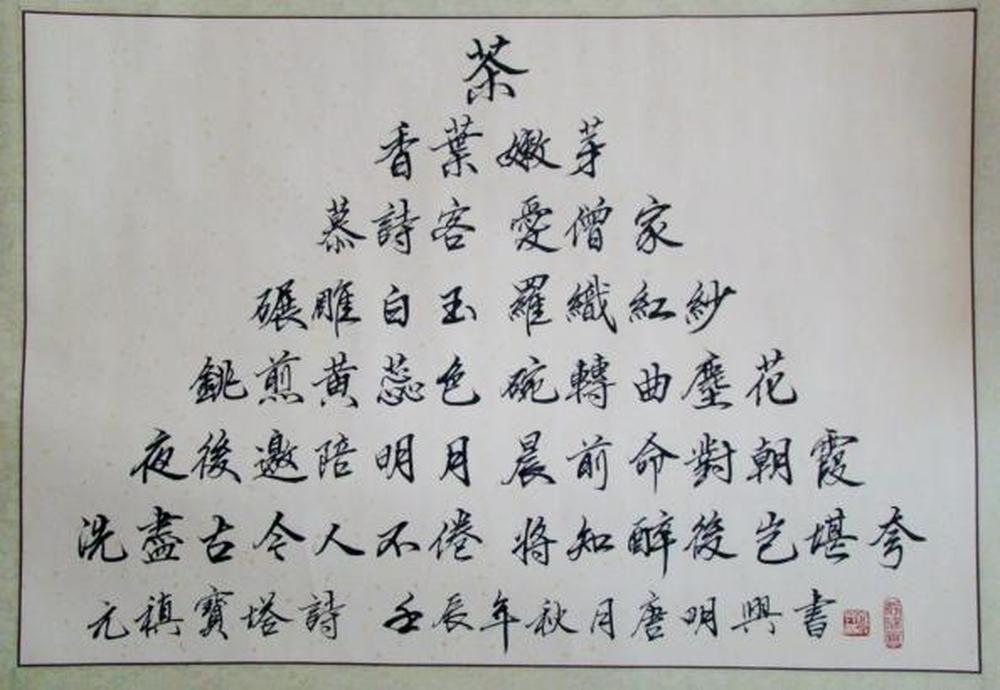 茶
香葉 嫩芽
慕詩客 愛僧家
碾雕白玉 羅織紅紗
銚煎黄蕊色 碗轉曲塵花
夜後邀陪明月 晨前命對朝霞
洗盡古今人不倦 將知醉後岂堪夸
元稹寶塔詩 壬辰年秋月唐明興書